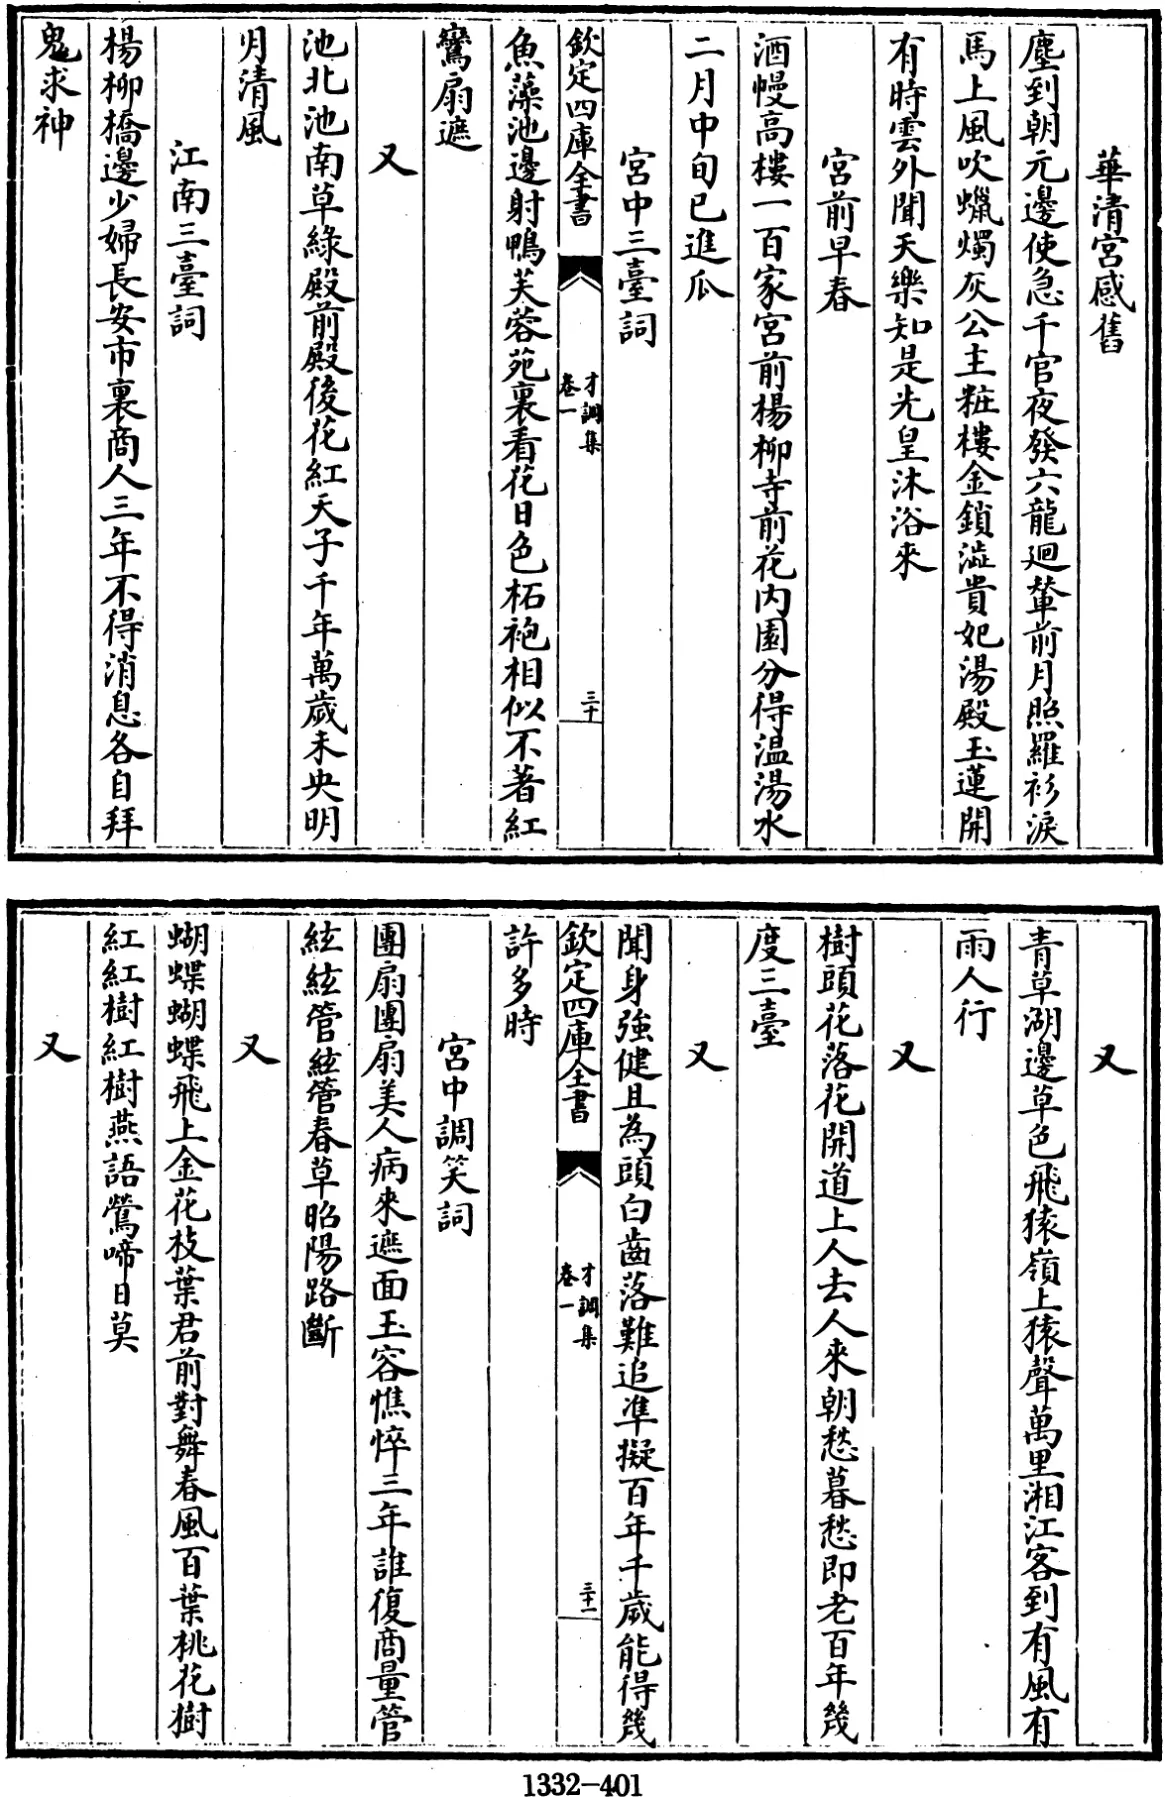 華清宮感舊
塵到朝元邊使急千官夜發六龍廻輦前月照羅衫淚
馬上風吹蠟燭灰公主粧樓金鎖澁貴妃湯殿玉蓮開
有時雲外聞天樂知是先皇沐浴來
宮前早春
酒幔高樓一百家宮前楊柳寺前花内園分得温湯水
二月中旬已進瓜
宮中三臺詞
欽定四庫全書
才調集
卷一
三十
魚藻池邊射鴨芙蓉苑裏看花日色柘袍相似不著紅
鸞扇遮
又
池北池南草綠殿前殿後花紅天子千年萬歲未央明
月清風
江南三臺詞
楊柳橋邊少婦長安市裏商人三年不得消息各自拜
鬼求神
又
青草湖邊草色飛猿嶺上猿聲萬里湘江客到有風有
雨人行
又
樹頭花落花開道上人去人來朝愁暮愁即老百年幾
度三臺
又
聞身強健且為頭白齒落難追準擬百年千歲能得幾
欽定四庫全書
才調集
卷一
三十一
許多時
宮中調笑詞
團扇團扇美人病來遮面玉容憔悴三年誰復商量管
絃絃管絃管春草昭陽路斷
又
蝴蝶蝴蝶飛上金花枝葉君前對舞春風百葉桃花樹
紅紅樹紅樹燕語鶯啼日莫
又
1332-401